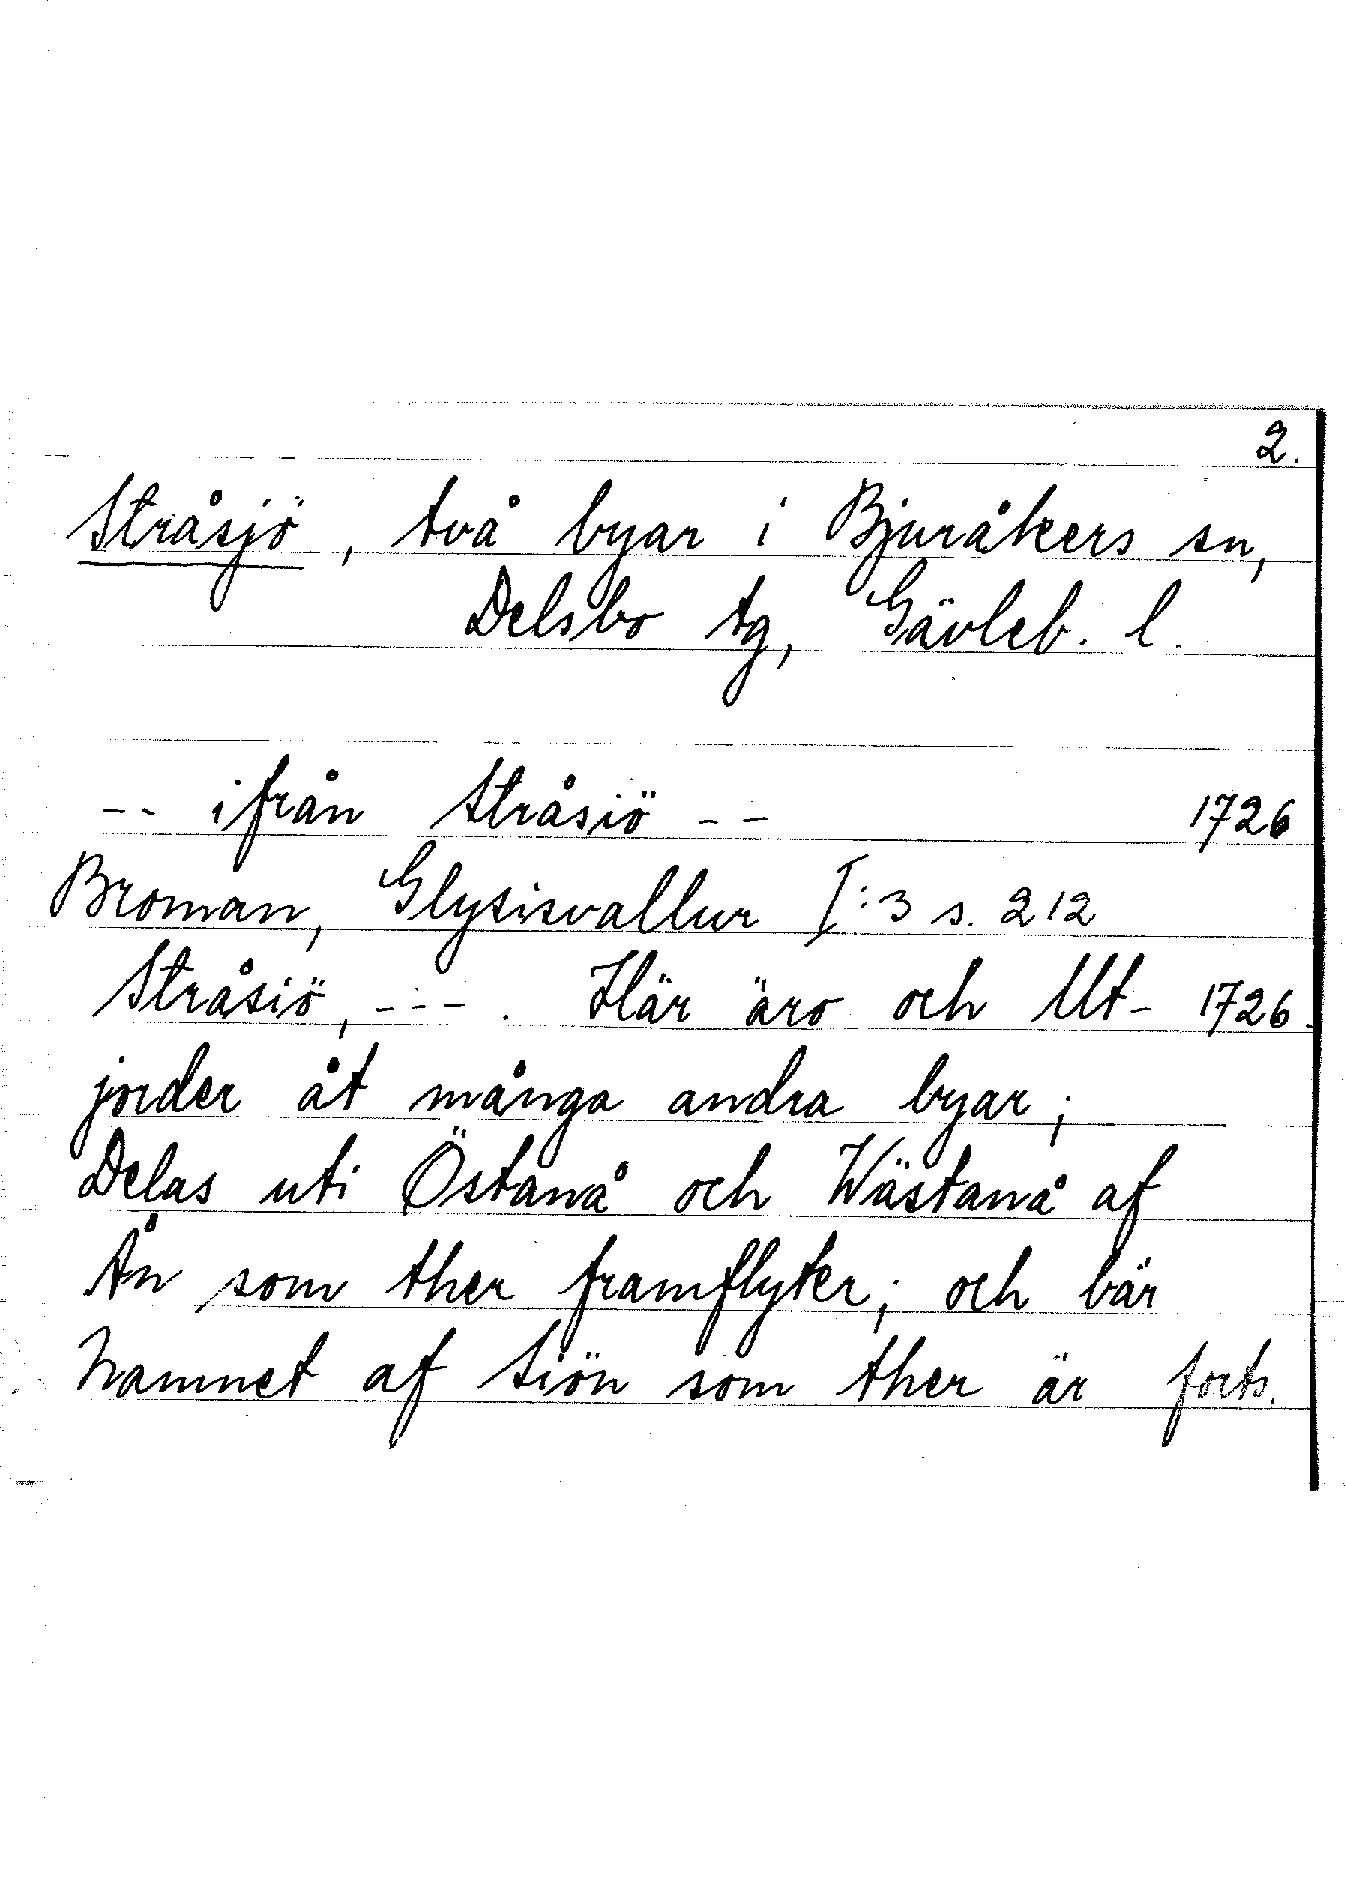 2.
Stråsjö, två byar i Bjuråkers sn,
Delsbo tg, Gävleb. l.
-- ifrån Stråsiö -- 1726
Broman, Glysisvallur I:3 s. 212
Stråsiö, ---. Här äro och Ut- 1726.
jorder åt många andra byar;
Delas uti Östanå och Wästanå af
Ån som ther framflyter; och bär
namnet af siön som ther är forts.